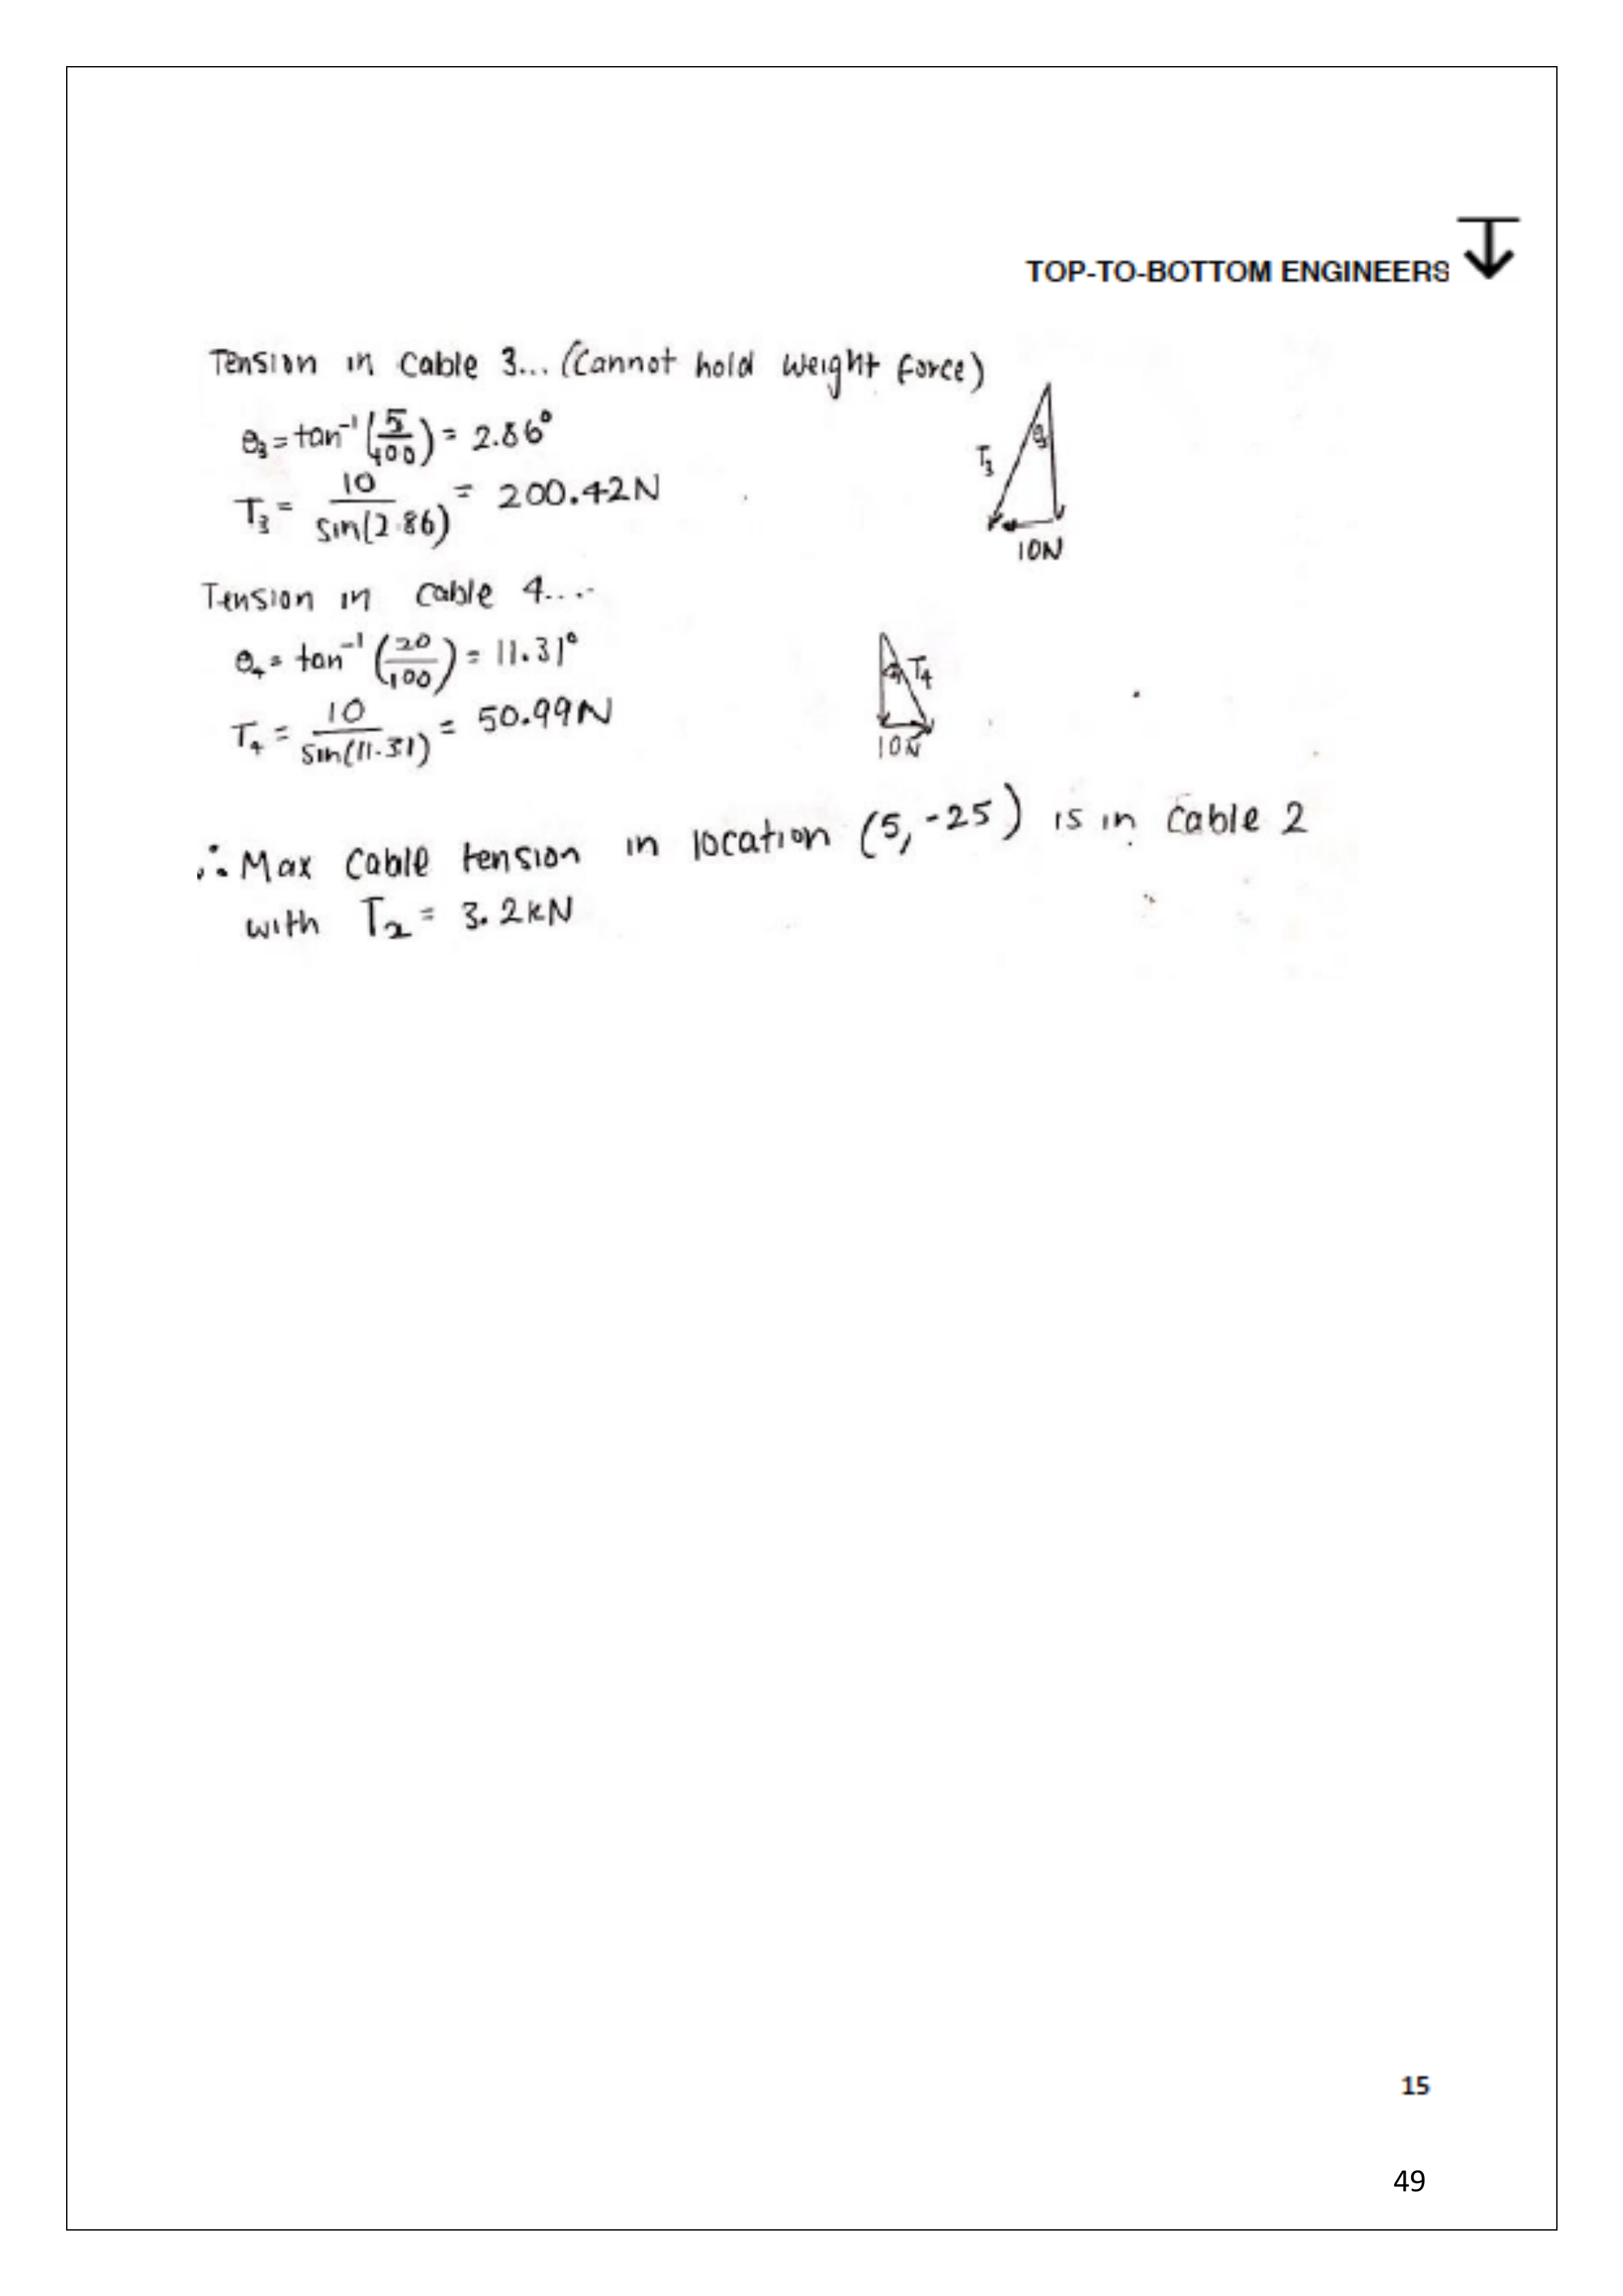 TOP-TO-BOTTOM ENGINEERS
Tension in Cable 3... (Cannot hold weight force)
θ₃ = tan⁻¹(5/100) = 2.86°
T₃ = 10/sin(2.86) = 200.42N
T₃
θ₃
10N
Tension in Cable 4....
θ₄ = tan⁻¹(20/100) = 11.31°
T₄ = 10/sin(11.31) = 50.99N
T₄
10N
∴ Max Cable tension in location (5, -25) is in Cable 2
with T₂ = 3.2kN
15
49